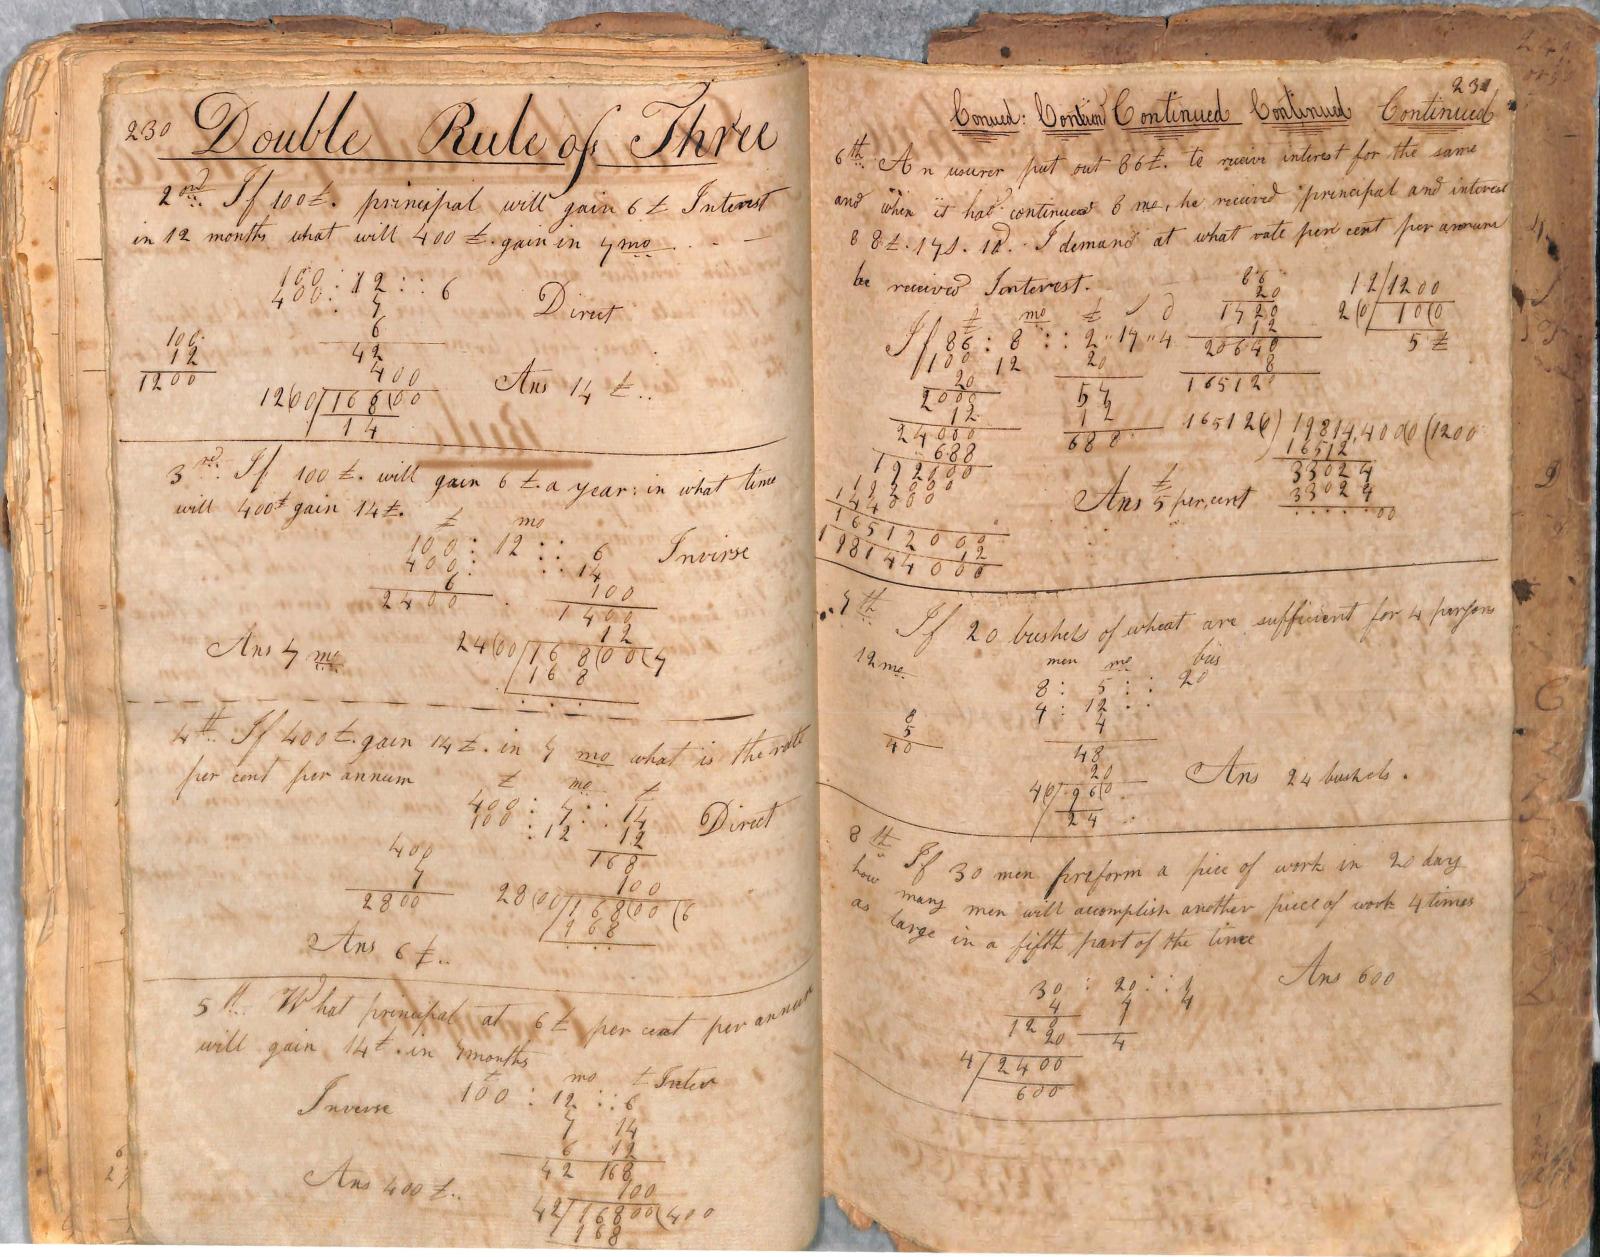 230 Double Rule of Three
2nd If 100£. principal will gain 6£ Interest
in 12 months what will 400£. gain in 7 mo
100 : 12 :: 6
400 : 7
Direct
6
100
12
1200
42
400
1200/168(00
14
Ans 14£..
3rd If 100£. will gain 6£. a year: in what time
will 400£ gain 14£.
£ mo
100 : 12 :: 6
400 : : 14
Inverse
6
2400
100
1400
12
2400/168(00(7
168
Ans 7 mo
4th If 400£. gain 14£. in 7 mo what is the rate
per cent per annum
£ mo £
400 : 7 : 14
100 : 12 12
Direct
168
100
400
7
2800
2800/168(00(6
168
Ans 6£..
5th What principal at 6£ per cent per annum
will gain 14£. in 7 months
£ mo £ Inter
100 : 12 :: 6
Inverse
7 14
6 12
42 168
100
42/16800(400
168
Ans 400£..
231
Conued: Contien Continued Continued Continued
6th An usurer put out 86£. to receive interest for the same
and when it had continued 8 mo, he received principal and interest
88£. 17s. 4d. I demand at what rate per cent per annum
be received Interest.
86
20
1720
12
20640
8
165120
12/1200
20/10(0
5£
£ mo £ s d
If 86 : 8 :: 2"17"4
100 12
20
2000
12
24000
688
192000
192000
144000
16512000
12
198144000
20
57
12
688
16512(0) 19814,400(0(1200
16512
33024
33024
00
Ans 5£ per, cent
7th If 20 bushels of wheat are sufficient for 4 persons
12 mo.
men mo bus
8 : 5 :: 20
4 : 12 :
4
8
5
40
48
20
40/96(0
24
Ans 24 bushels.
8th If 30 men preform a piece of work in 20 day
how many men will acomplish another piece of work 4 times
as large in a fifth part of the time
30 : 20 :: 1
4 4
120
20
4
4/2400
600
Ans 600